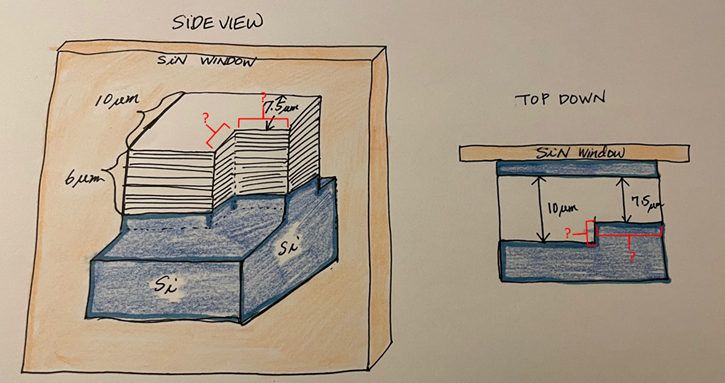 SIDE VIEW
SiN WINDOW
10 µm
?
?
7.5 µm
6 µm
Si
Si
TOP DOWN
SiN Window
10 µm
7.5 µm
?
?